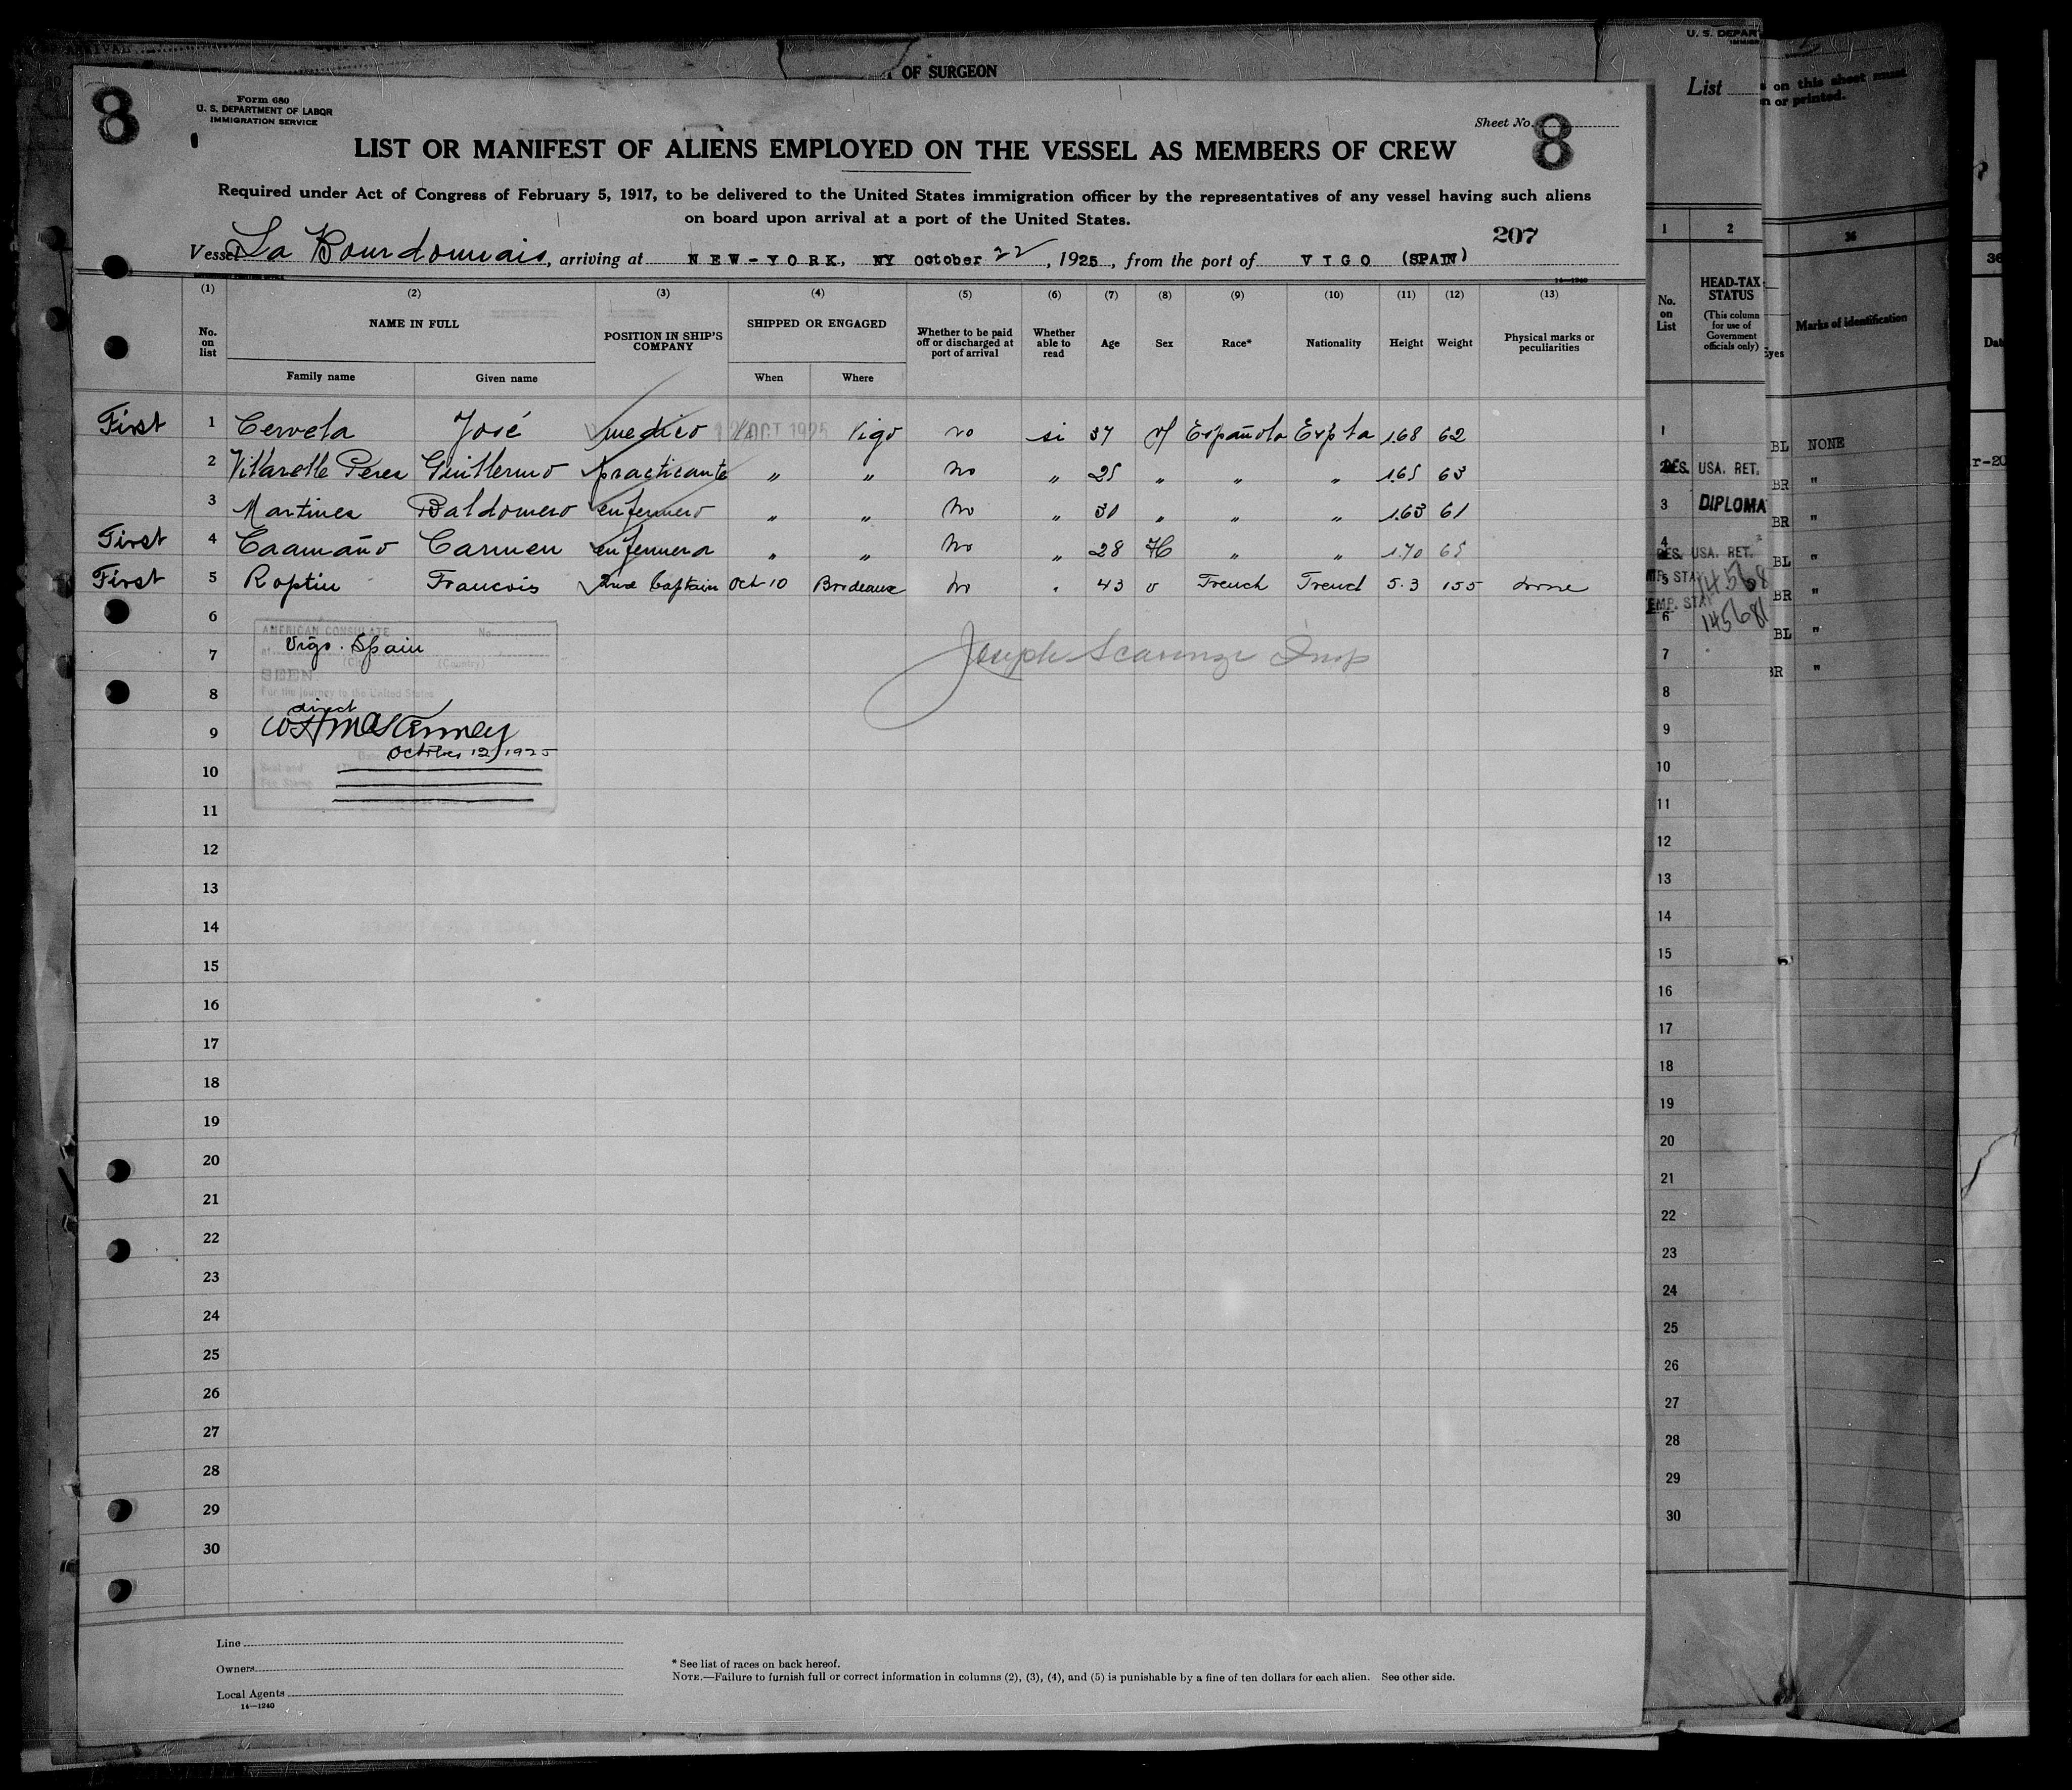 OF SURGEON
8
Form 680
U. S. DEPARTMENT OF LABOR
IMMIGRATION SERVICE
Sheet No. 8
LIST OR MANIFEST OF ALIENS EMPLOYED ON THE VESSEL AS MEMBERS OF CREW
Required under Act of Congress of February 5, 1917, to be delivered to the United States immigration officer by the representatives of any vessel having such aliens
on board upon arrival at a port of the United States.
207
Vessel La Bourdonnais, arriving at NEW-YORK, NY October 22, 1925, from the port of VIGO (SPAIN)
14—1240
(1) (2) (3) (4) (5) (6) (7) (8) (9) (10) (11) (12) (13)
No. on list NAME IN FULL POSITION IN SHIP'S COMPANY SHIPPED OR ENGAGED Whether to be paid off or discharged at port of arrival Whether able to read Age Sex Race* Nationality Height Weight Physical marks or peculiarities
Family name Given name When Where
First 1 Cervela José medico 12 OCT 1925 Vigo no si 37 M Española Expla 1.68 62
2 Villarelle Perez Guillermo practicante " " No " 25 " " " 1.65 63
3 Martinez Baldomero enfermero " " No " 30 " " " 1.63 61
First 4 Caamaño Carmen enfermera " " No " 28 H " " 1.70 65
First 5 Roptin Francois 2nd Captain Oct 10 Bordeaux no " 43 French French 5.3 155 none
6
7
8
9
10
11
12
13
14
15
16
17
18
19
20
21
22
23
24
25
26
27
28
29
30
AMERICAN CONSULATE No.
at Vigo. Spain
(City) (Country)
SEEN
For the journey to the United States
direct
October 12, 1925
Joseph Insp
Line
Owners
Local Agents
14—1240
* See list of races on back hereof.
NOTE.—Failure to furnish full or correct information in columns (2), (3), (4), and (5) is punishable by a fine of ten dollars for each alien. See other side.
U. S. DEPAR
IMMIGR
List
1 2
No. on List HEAD-TAX STATUS
(This column for use of Government officials only)
1
2 USA. RET.
3 DIPLOMA
4 USA. RET.
5 STA 14568
6 EMP. STA 145681
7
8
9
10
11
12
13
14
15
16
17
18
19
20
21
22
23
24
25
26
27
28
29
30
on this sheet must
n or printed.
36
Eyes Marks of identification
BL NONE
BR "
BR "
BL "
BR "
BL "
BR "
36
Dat
r-20